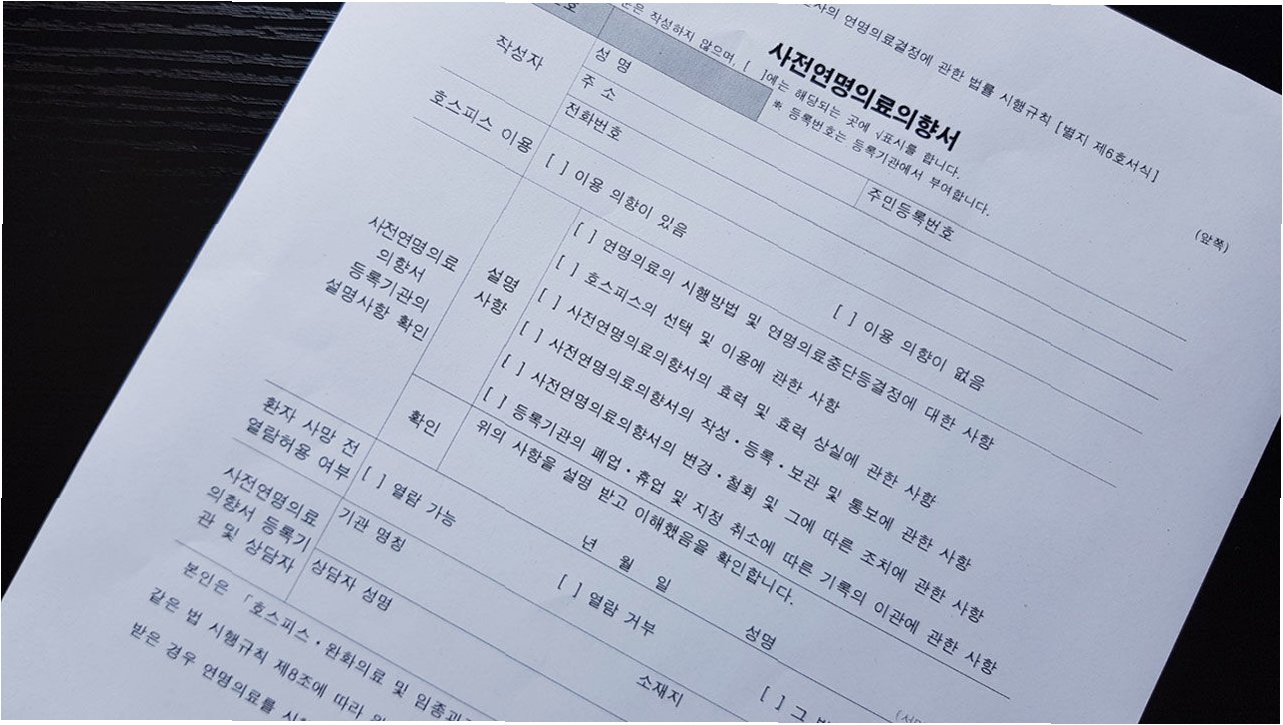 연명의료결정에 관한 법률 시행규칙 [별지 제6호서식]
사전연명의료의향서
(앞쪽)
작성하지 않으며, [ ]에는 해당되는 곳에 √표시를 합니다.
※ 등록번호는 등록기관에서 부여합니다.
작성자
성 명
주민등록번호
주 소
전화번호
호스피스 이용
[ ] 이용 의향이 있음
[ ] 이용 의향이 없음
사전연명의료
의향서
등록기관의
설명사항 확인
설명
사항
[ ] 연명의료의 시행방법 및 연명의료중단등결정에 대한 사항
[ ] 호스피스의 선택 및 이용에 관한 사항
[ ] 사전연명의료의향서의 효력 및 효력 상실에 관한 사항
[ ] 사전연명의료의향서의 작성·등록·보관 및 통보에 관한 사항
[ ] 사전연명의료의향서의 변경·철회 및 그에 따른 조치에 관한 사항
[ ] 등록기관의 폐업·휴업 및 지정 취소에 따른 기록의 이관에 관한 사항
확인
위의 사항을 설명 받고 이해했음을 확인합니다.
년 월 일
성명
환자 사망 전
열람허용 여부
[ ] 열람 가능
[ ] 열람 거부
[ ] 그
사전연명의료
의향서 등록기
관 및 상담자
기관 명칭
소재지
상담자 성명
본인은 「호스피스·완화의료 및
같은 법 시행규칙 제8조에 따라
받은 경우 연명의료를